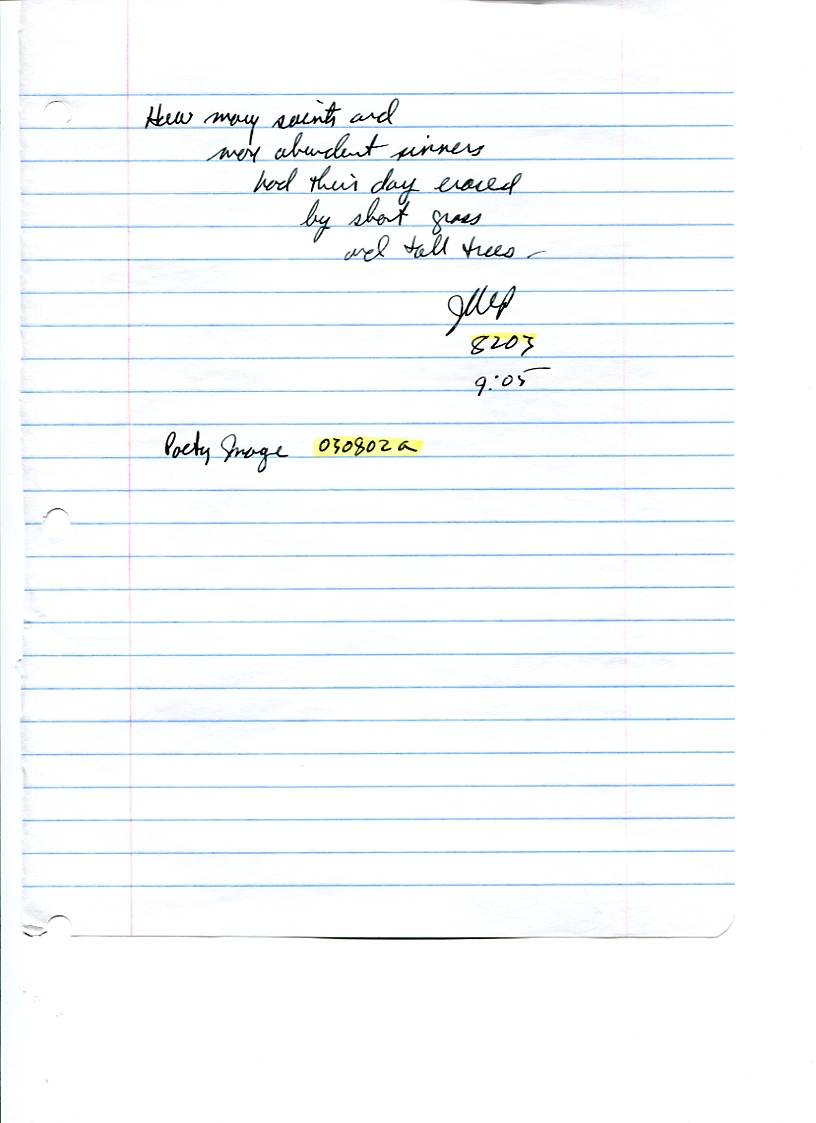 How many saints and
more abundent sinners
had their day erased
by short grass
and tall trees –
8203
9:05
Poetry Image 030802a